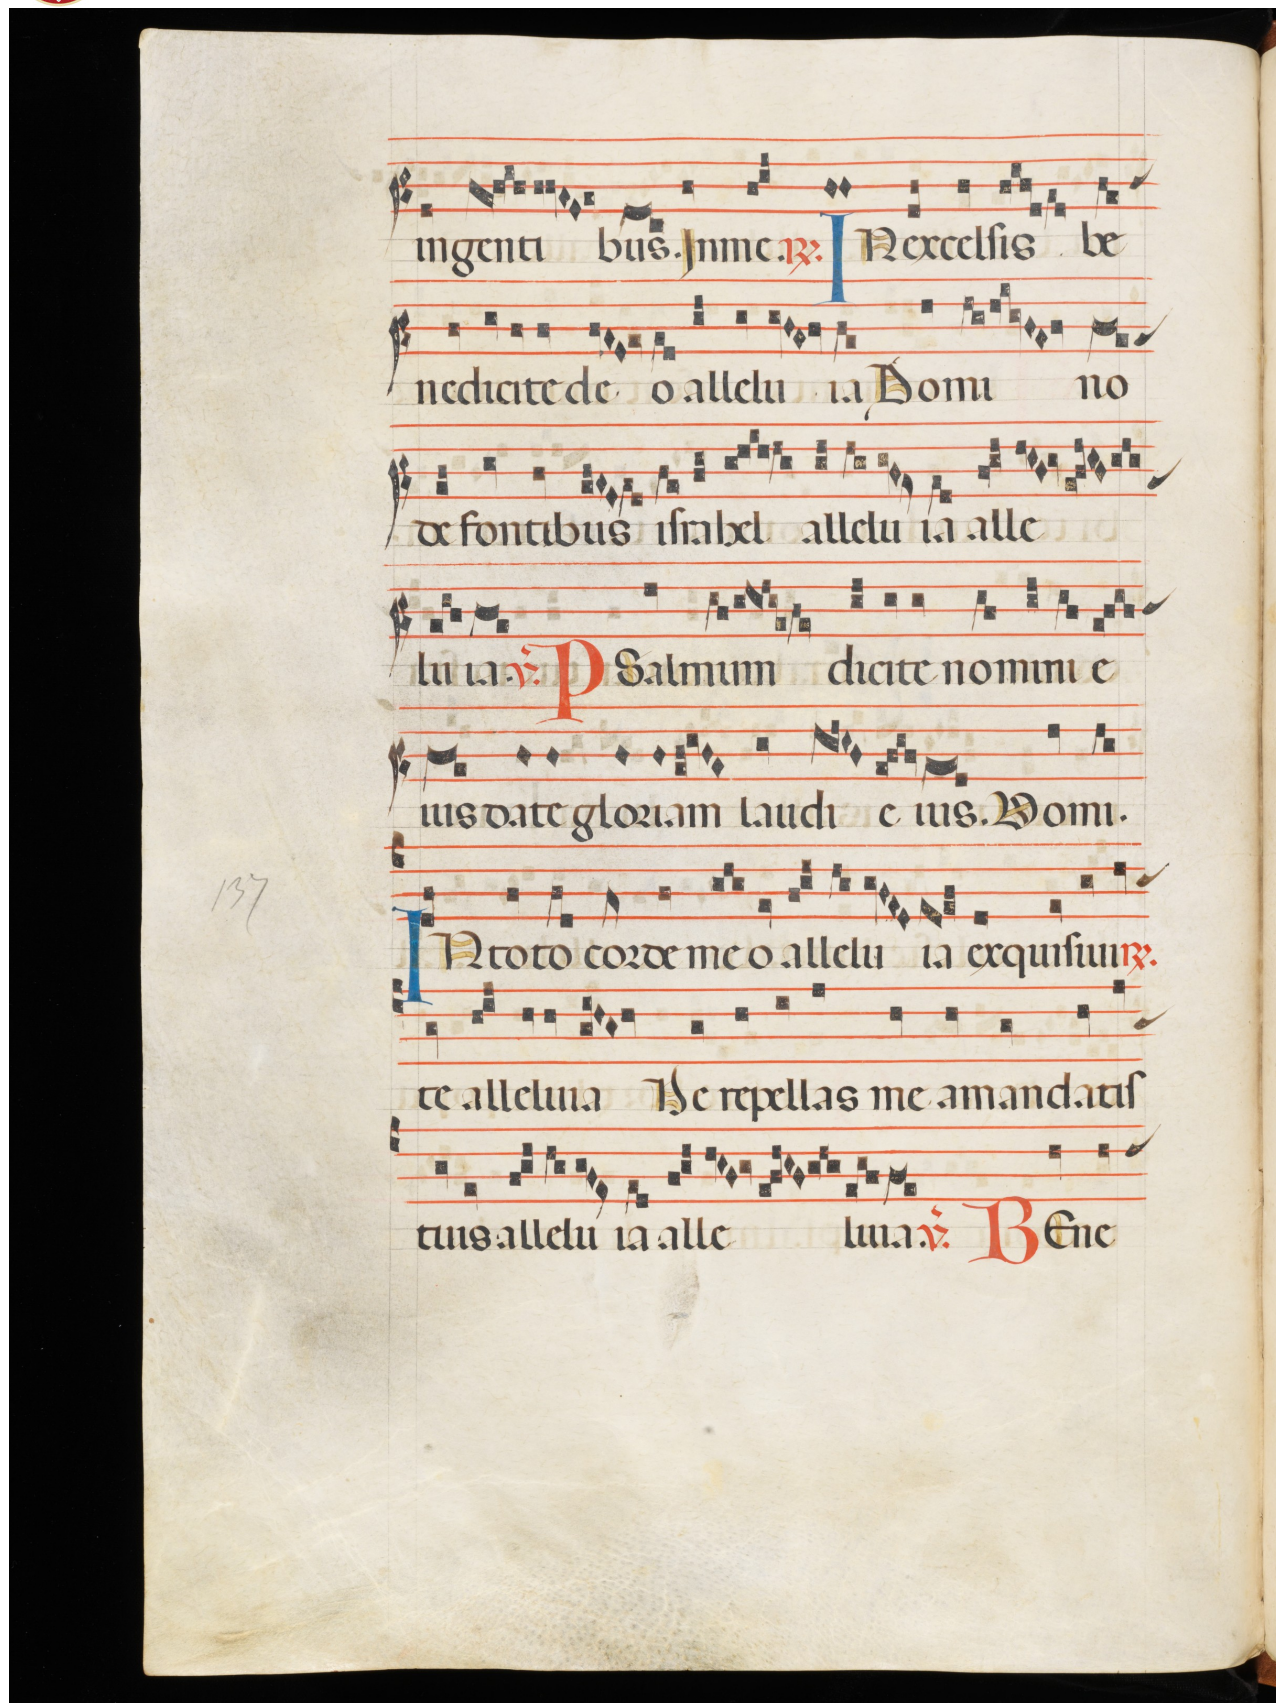 in genti bus. In me. R. IN excelsis be
nedicite deo allelu ia Domi no
de fontibus israhel allelu ia alle
lu ia. V. PSalmum dicite nomini e
ius date gloriam laudi e ius. Domi.
IN toto corde meo allelu ia exquisivi R.
te alleluia Ne repellas me a mandatis
tuis allelu ia alle luia. V. BEne
137